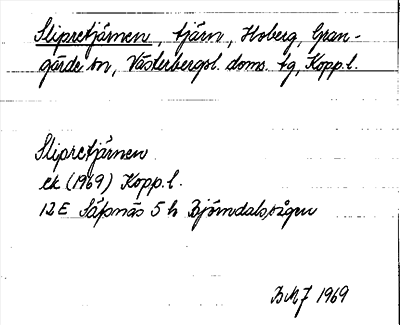 Slipretjärnen, tjärn, Hoberg, Gran-
gärde sn, Västerbergsl. doms. tg, Kopp.l.
Slipretjärnen
ek (1969) Kopp.l.
12E Säfsnäs 5 h Björndalsvägen
BMJ 1969